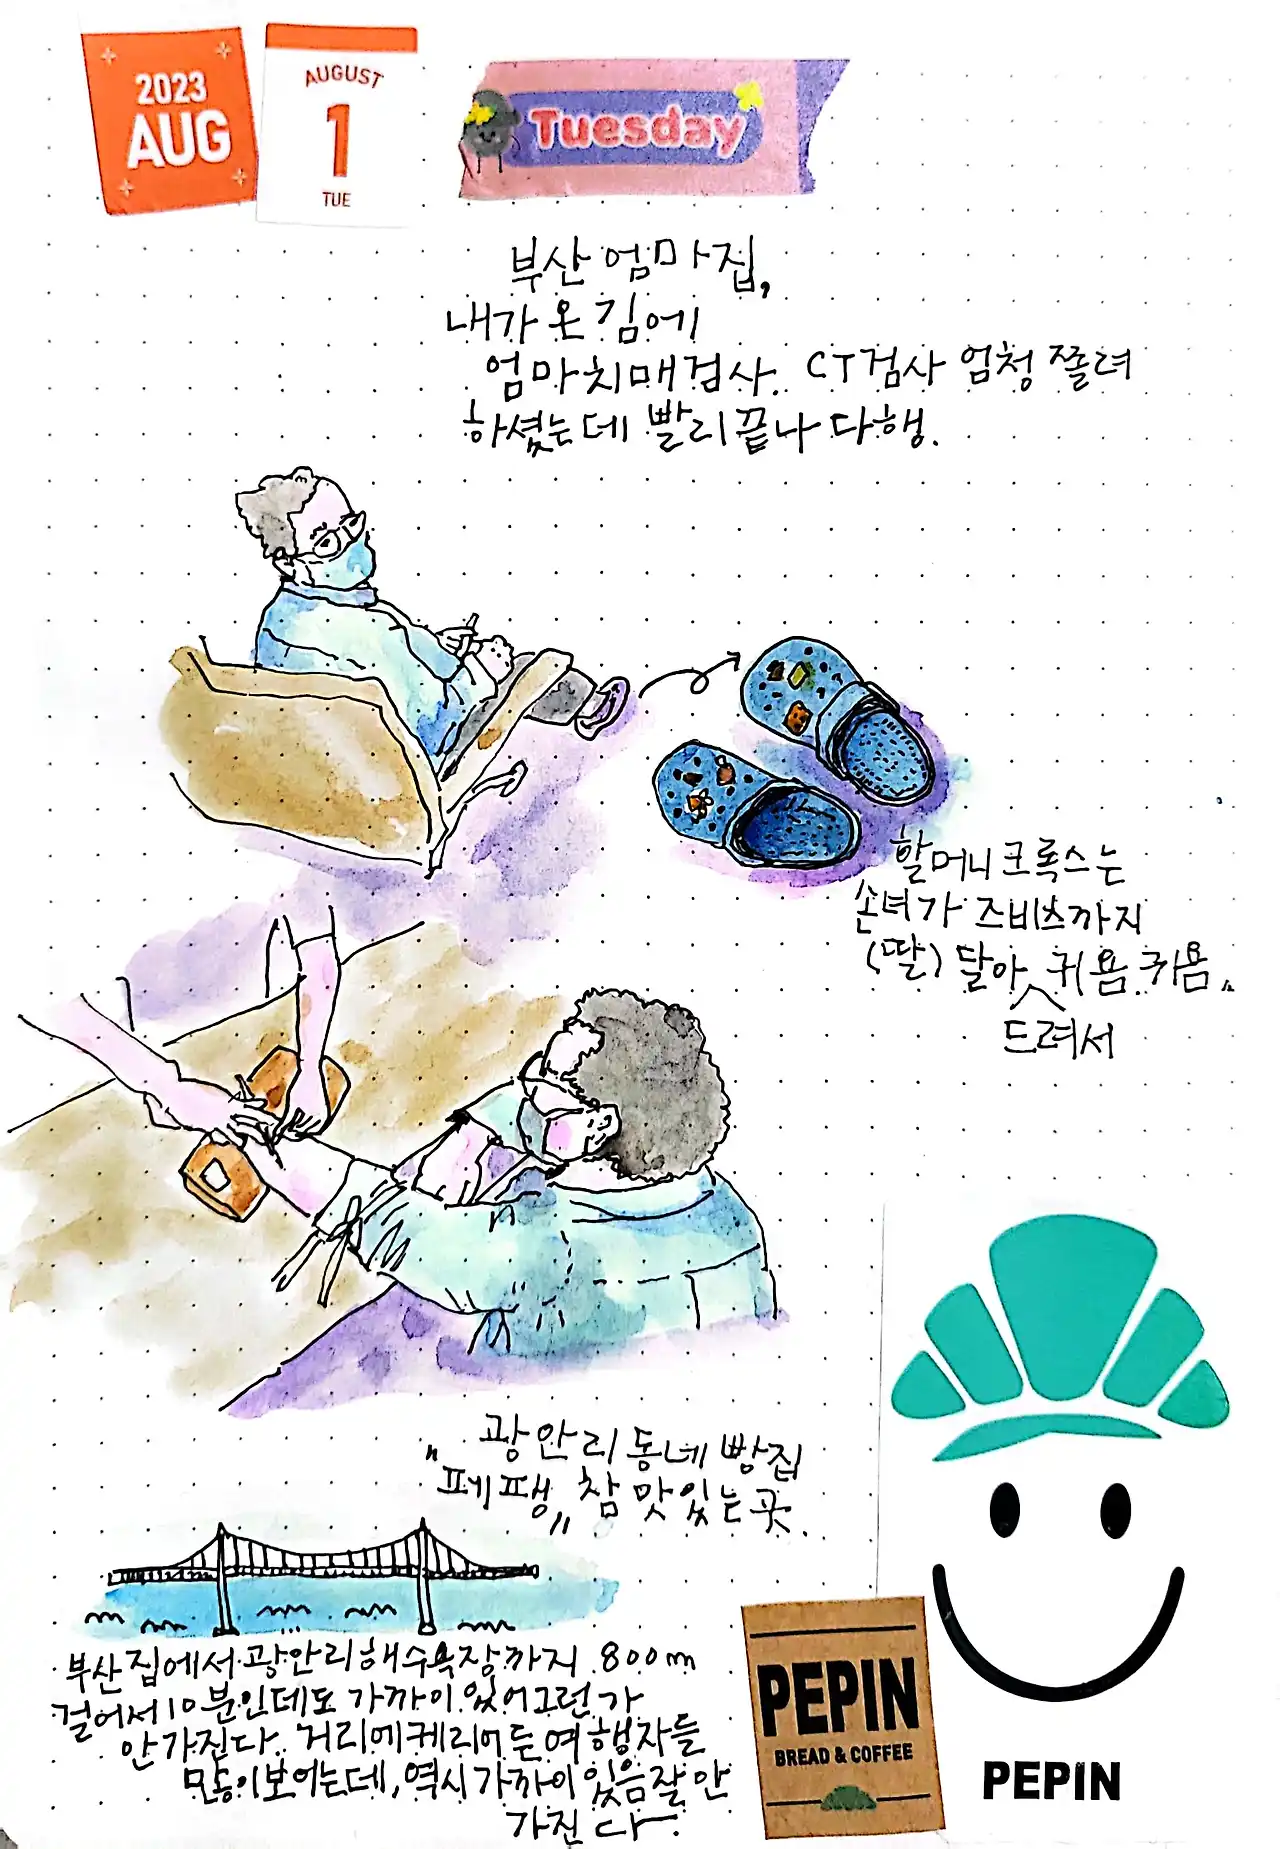 2023
AUG
AUGUST
1
TUE
Tuesday
부산 엄마집,
내가 온 김에
엄마 치매검사. CT검사 엄청 쫄려
하셨는데 빨리 끝나 다행.
할머니 크록스는
손녀가 즈비츠까지
(딸) 달아 귀욤 귀욤..
드려서
광안리 동네 빵집
"페팽" 참 맛있는 곳.
부산집에서 광안리 해수욕장까지 800m
걸어서 10분인데도 가까이 있어 그런가
안 가진다. 거리에 케리어 든 여행자들
많이 보이는데, 역시 가까이 있음 잘 안
가진다.
PEPIN
BREAD & COFFEE
PEPIN